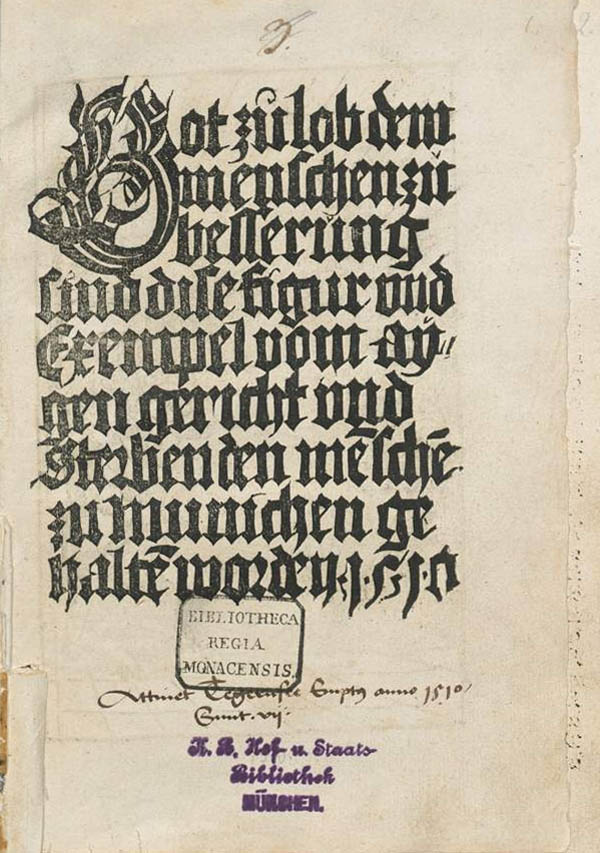 Got zů lob dem
menschen zů
besserung
sind dise figur vnd
Exempel vom ay⸗
gen gericht vnd
Sterbenden mēschē
zu munichen ge
haltē worden .1.5.1.0
BIBLIOTHECA
REGIA
MONACENSIS.
Attinet Tegernsee Emptus anno 1510
Sunt. vij.
K. B. Hof u. Staats-
Bibliothek
MÜNCHEN.